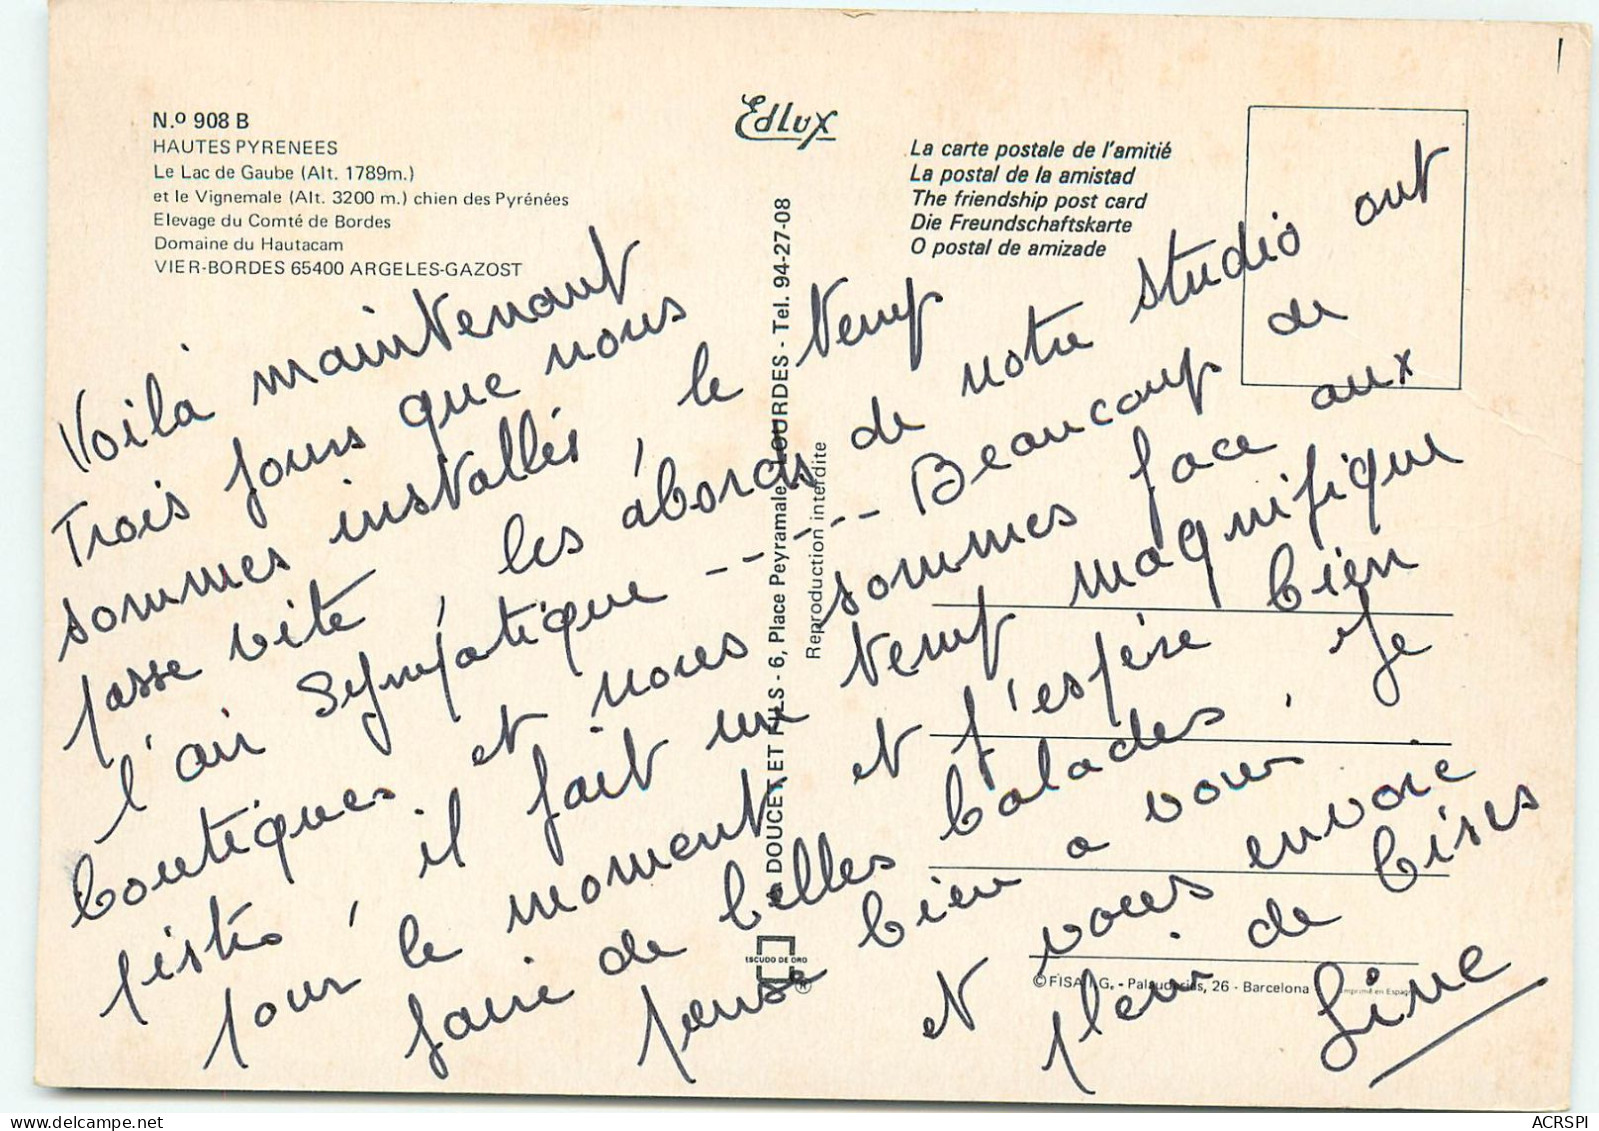 N.º 908 B
HAUTES PYRENEES
Le Lac de Gaube (Alt. 1789m.)
et le Vignemale (Alt. 3200 m.) chien des Pyrénées
Elevage du Comté de Bordes
Domaine du Hautacam
VIER-BORDES 65400 ARGELES-GAZOST
Edlux
La carte postale de l'amitié
La postal de la amistad
The friendship post card
Die Freundschaftskarte
O postal de amizade
DOUCET ET FILS - 6, Place Peyramale LOURDES - Tel. 94-27-08
Reproduction interdite
Voilà maintenant
Trois jours que nous
sommes installés, le temp
passe vite, les abords de notre studio ont
l'air sympatique ----- Beaucoup de
boutiques et nous sommes face aux
pistes, il fait un temp magnifique
pour le moment et j'espère bien
faire de belles balades, je
pense bien a vous
et vous envoie
plein de bises
Line
ESCUDO DE ORO
®
© FISA I.G. - Palaudarias, 26 - Barcelona
Imprimé en Espagne
ACRSPI